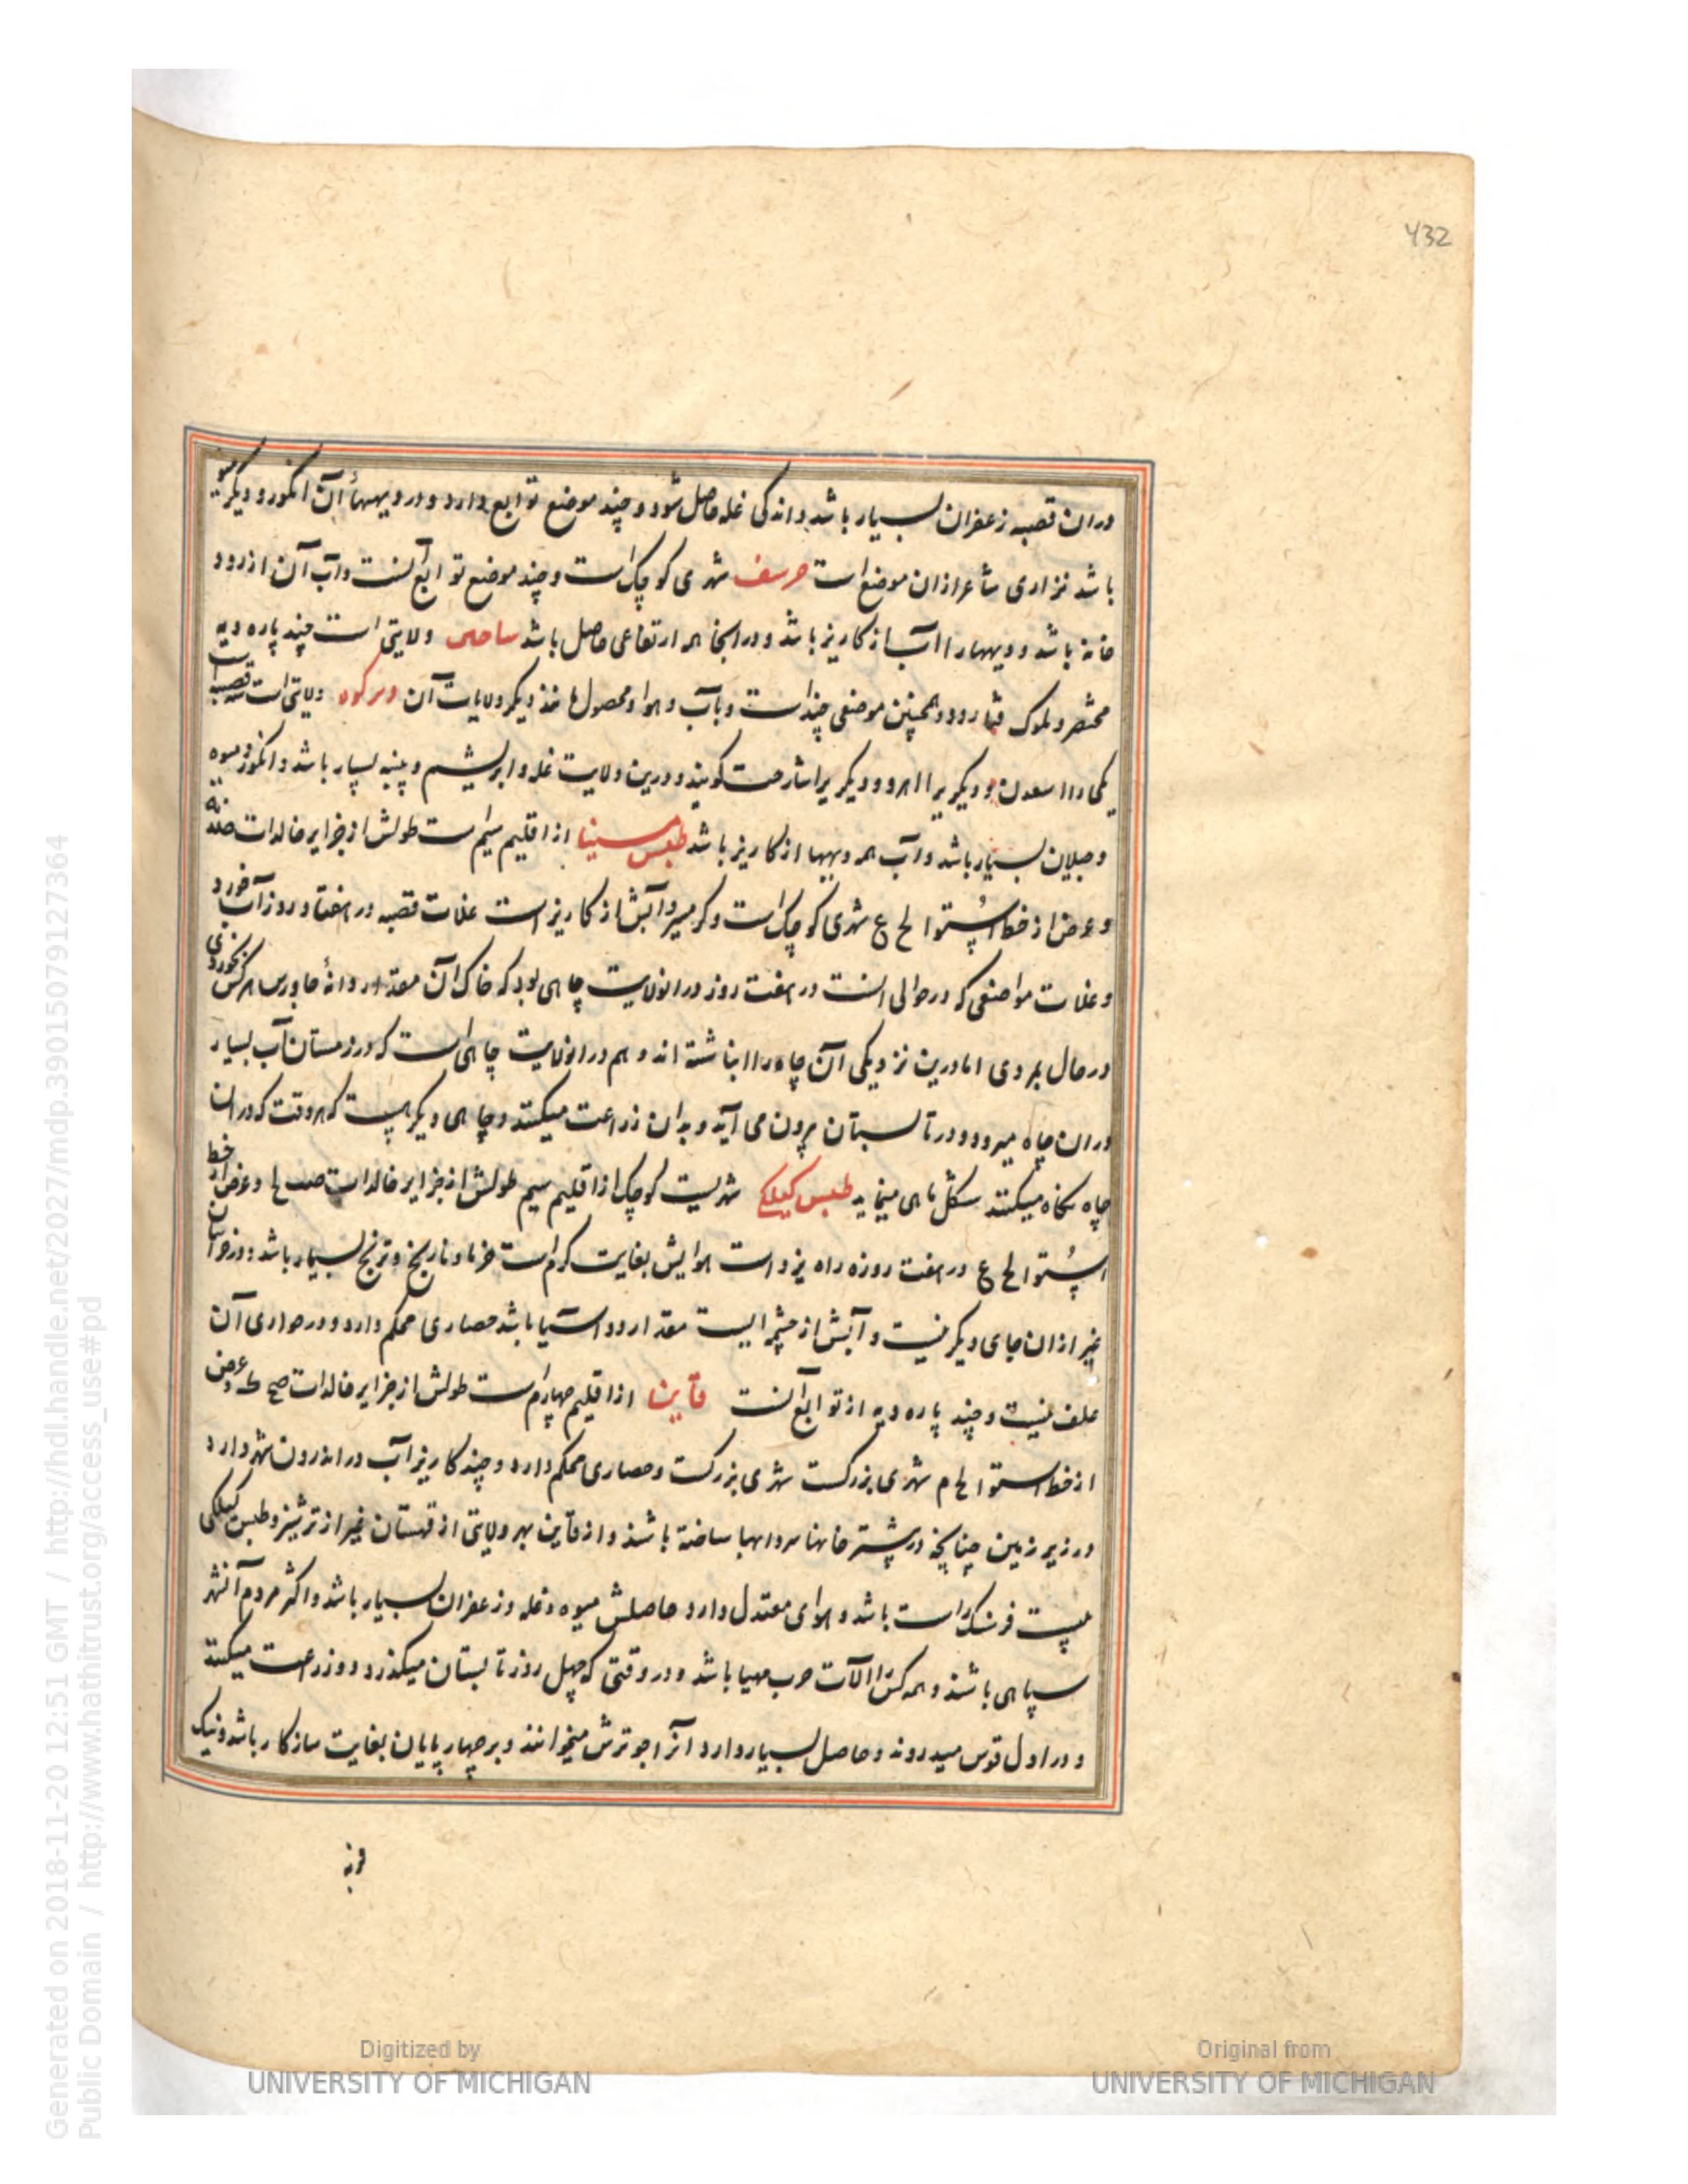 432
دران قصبه زعفران بسیار باشد واندکی غله حاصل شود و چند موضع توابع دارد ودر دیههاء آن انکور و دیکر میوه
باشد نزاری شاعر ازان موضع است شهری کوچک است و چند موضع توابع آنست وآب آن از رود
خانه باشد و دیهها را آب از کاریز باشد و در انجا همه ارتفاعی حاصل باشد ولایتی است چند پاره دیه
مختصر و همچنین موضعی چند است وبآب و هوا و محصول مانند دیکر ولایات آن ولایتی است سه قصبه
یکی را و دیکریرا و دیکریرا کویند و درین ولایت غله وابریشم و پنبه بسیار باشد وانکور ومیوه
بسیار باشد وآب همه دیهها از کاریز باشد طبس مسینا از اقلیم سیم است طولش از جزایر خالدات
وعرض از خط استوا لح ع شهری کوچک است وکرمسیر وآبش از کاریز است غلات قصبه در هفتاد روز آب خورد
وغلات مواضعی که در حوالی است در هفت روز دران ولایت چاهی بود که خاک آن مقدار دانهٔ جاورس هرکس بخوردی
در حال بمردی اما درین نزدیکی آن چاه را انباشته اند و هم دران ولایت چاهی است که در زمستان آب بسیار
دران چاه میرود و در تابستان برون می آید و بدان زراعت میکنند وچاهی دیکر هست که هر وقت که دران
چاه نکاه میکنند شکل ماهی مینماید طبس کیلکی شهریست کوچک از اقلیم سیم طولش از جزایر خالدات صب لا وعرض از خط
استوا لح ع در هفت روزه راه یزد است هوایش بغایت کرم است خرما و نارنج و ترنج بسیار باشد ودر خراسان
غیر ازان جای دیکر نیست وآبش از چشمه ایست مقدار دو آسیا باشد حصاری محکم دارد و در حوالی آن
علف نیست و چند پاره دیه از توابع آنست قاین از اقلیم چهارم است طولش از جزایر خالدات صح ک وعرض
از خط استوا لح م شهری بزرکست شهری بزرکست وحصاری محکم دارد و چند کاریز آب در اندرون شهر دارد
در زیر زمین چنانچه در بیشتر خانها سردابها ساخته باشند واز قاین بهر ولایتی از قهستان غیر از ترشیز وطبس کیلکی
بیست فرسنک راست باشد و هوای معتدل دارد حاصلش میوه وغله وزعفران بسیار باشد واکثر مردم آنشهر
سپاهی باشند و همه کس را آلات حرب مهیا باشد و در وقتی که چهل روز تابستان میکذرد دو زراعت میکنند
و در اول قوس میدروند وحاصل بسیار دارد آنرا جو ترش میخوانند و بر چهار پایان بغایت سازکار باشد ونیک
فربه
Generated on 2018-11-20 12:51 GMT / http://hdl.handle.net/2027/mdp.39015079127364
Public Domain / http://www.hathitrust.org/access_use#pd
Digitized by
UNIVERSITY OF MICHIGAN
Original from
UNIVERSITY OF MICHIGAN